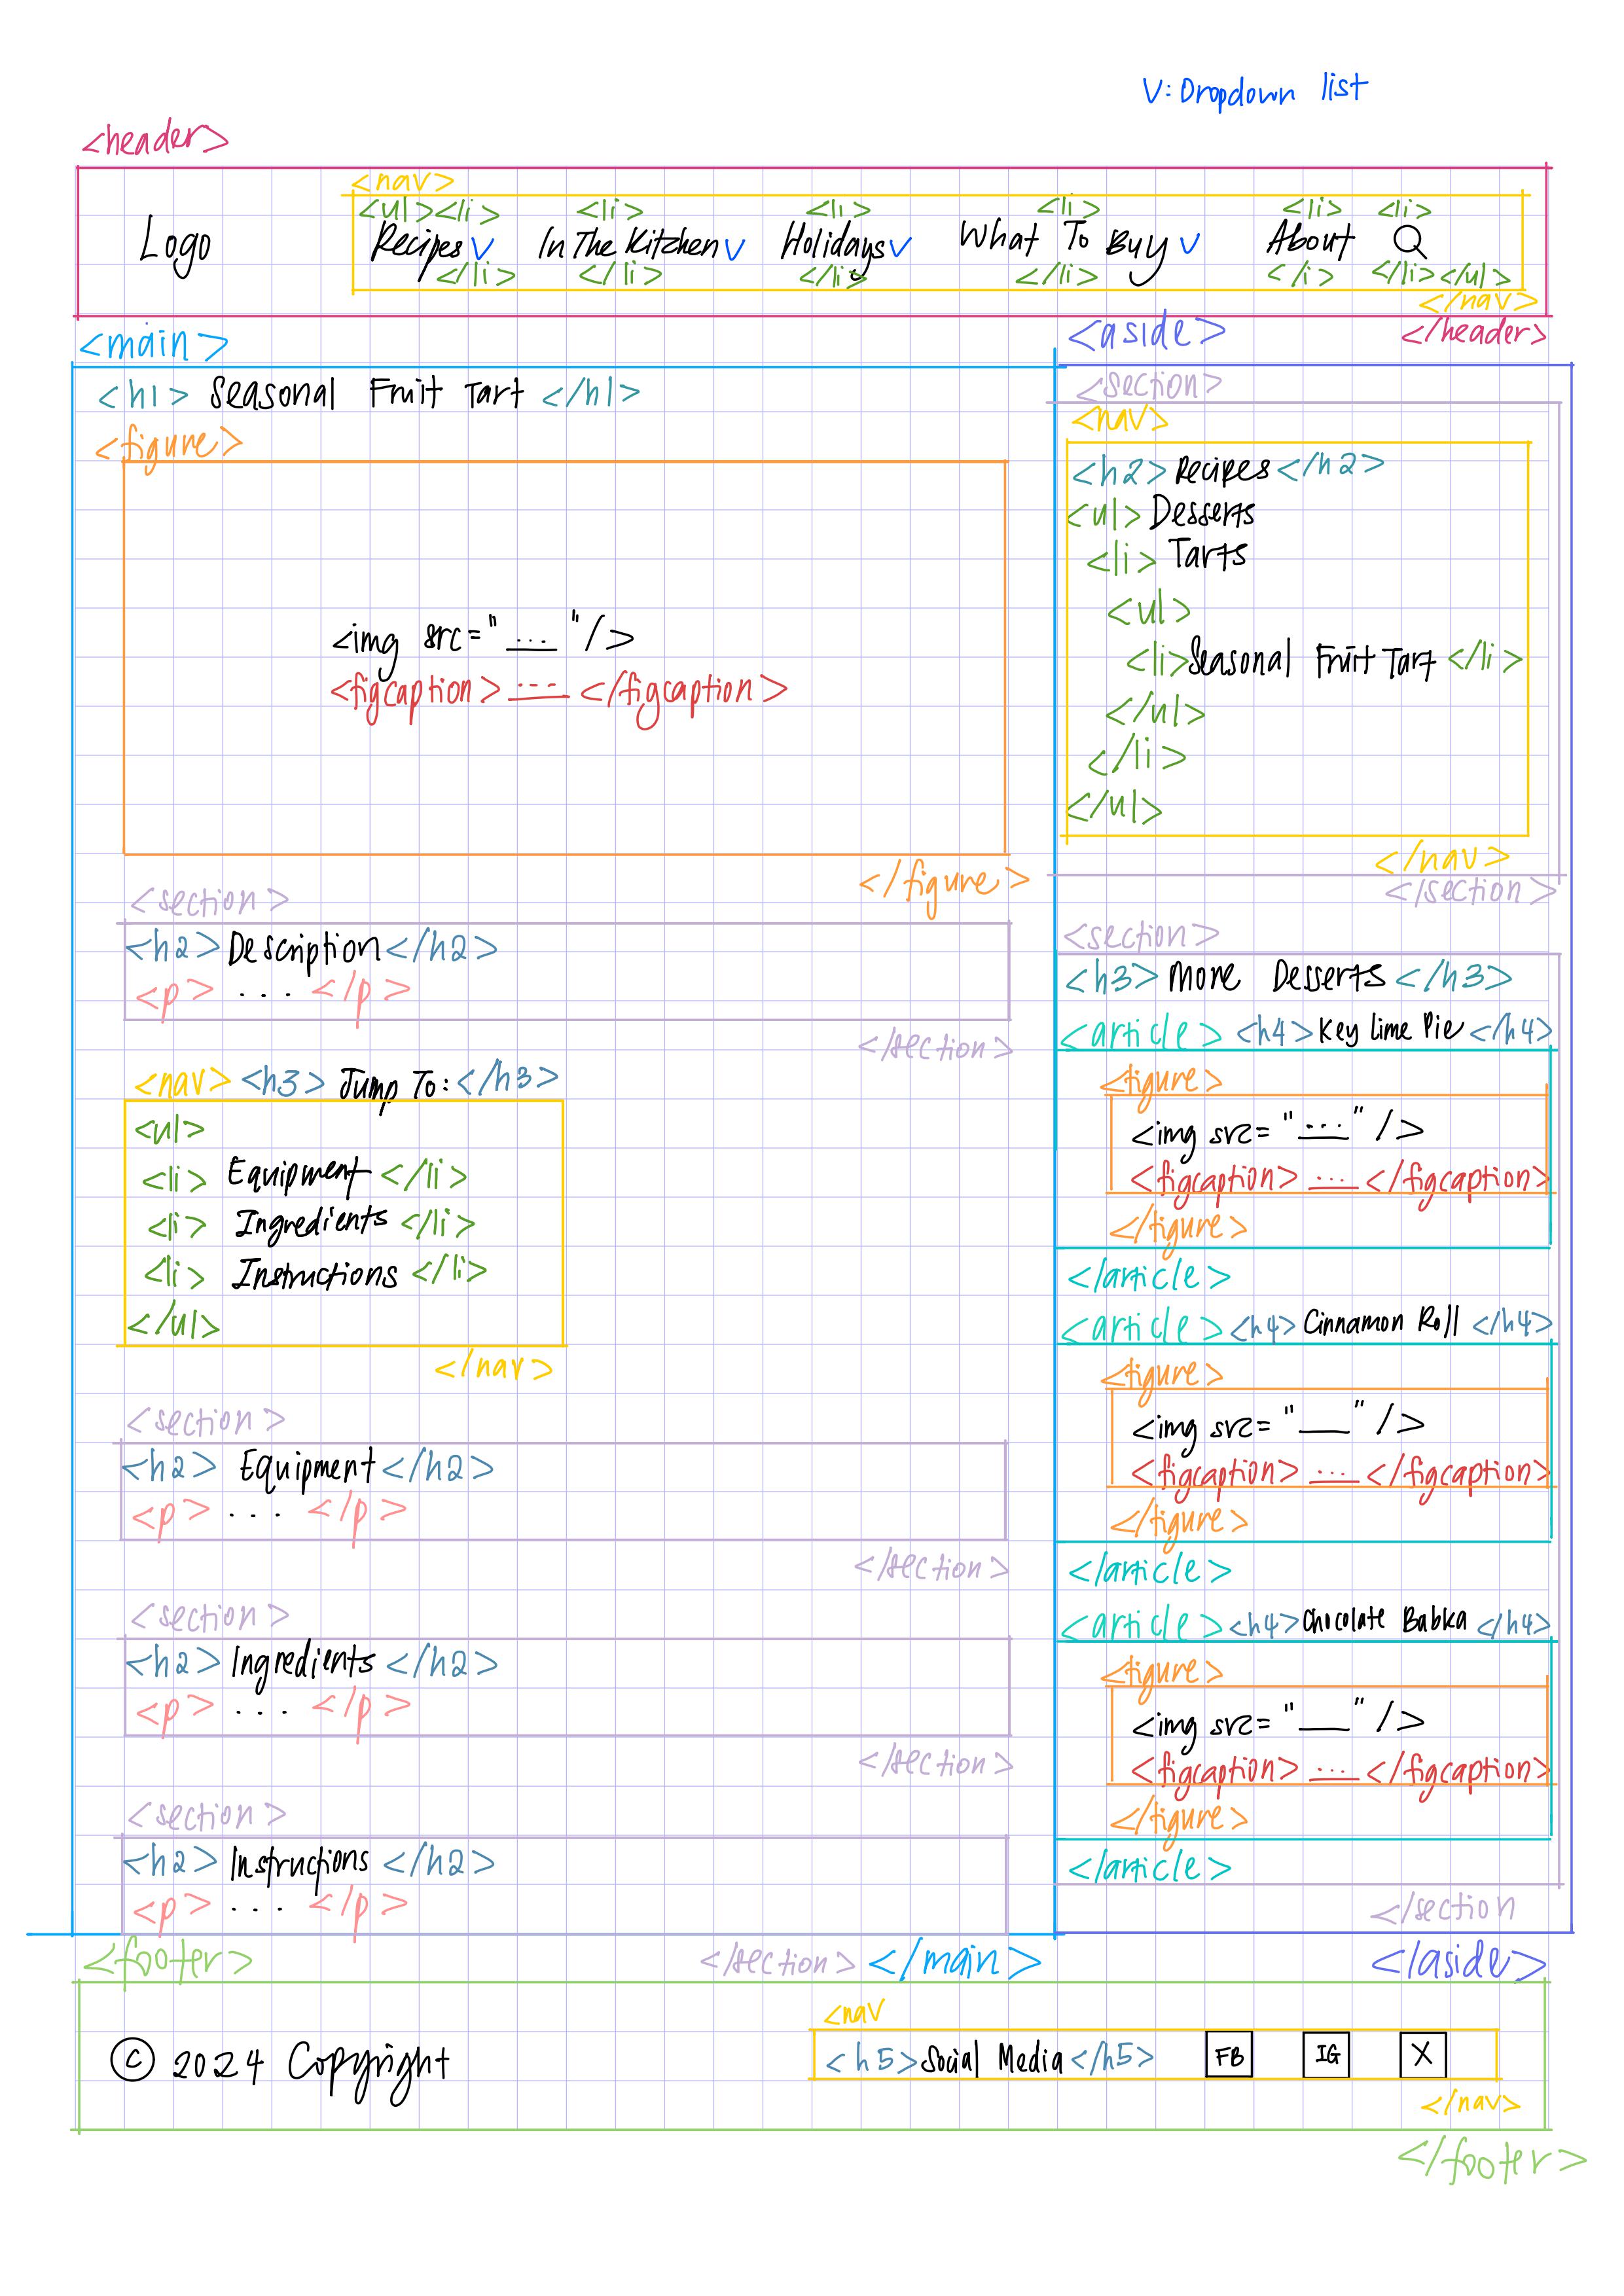 V: Dropdown list
<header>
<nav>
<ul> <li> <li> <li> <li> <li> <li>
Logo Recipes V In The Kitchen V Holidays V What To Buy V About
</li> </li> </li> </li> </i> </li> </ul>
</nav>
</header>
<main>
<h1> Seasonal Fruit Tart </h1>
<figure>
<img src="..."/>
<figcaption> ... </figcaption>
</figure>
<section>
<h2> Description </h2>
<p> ... </p>
</section>
<nav> <h3> Jump To: </h3>
<ul>
<li> Equipment </li>
<li> Ingredients </li>
<li> Instructions </li>
</ul>
</nav>
<section>
<h2> Equipment </h2>
<p> ... </p>
</section>
<section>
<h2> Ingredients </h2>
<p> ... </p>
</section>
<section>
<h2> Instructions </h2>
<p> ... </p>
</section> </main>
<aside>
<section>
<nav>
<h2> Recipes </h2>
<ul> Desserts
<li> Tarts
<ul>
<li> Seasonal Fruit Tart </li>
</ul>
</li>
</ul>
</nav>
</section>
<section>
<h3> More Desserts </h3>
<article> <h4> Key Lime Pie </h4>
<figure>
<img src="..." />
<figcaption> ... </figcaption>
</figure>
</article>
<article> <h4> Cinnamon Roll </h4>
<figure>
<img src="___" />
<figcaption> ... </figcaption>
</figure>
</article>
<article> <h4> Chocolate Babka </h4>
<figure>
<img src="___" />
<figcaption> ... </figcaption>
</figure>
</article>
</section
</aside>
<footer>
© 2024 Copyright
<nav
<h5> Social Media </h5> FB IG X
</nav>
</footer>